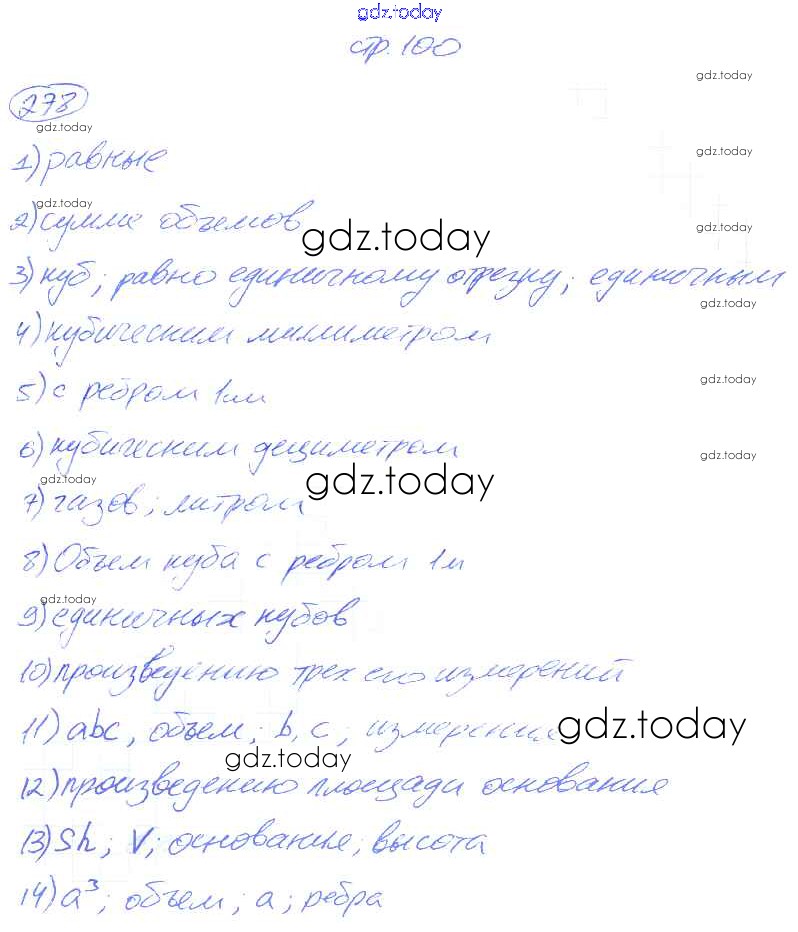 gdz.today
стр. 100
gdz.today
278
gdz.today
gdz.today
1) равные
gdz.today
2) сумме объемов
gdz.today
gdz.today
3) куб; равно единичному отрезку; единичным
gdz.today
4) кубическим миллиметром
gdz.today
5) с ребром 1см
6) кубическим дециметром
gdz.today
gdz.today
gdz.today
7) газов; литром
8) Объем куба с ребром 1м
gdz.today
9) единичных кубов
10) произведению трех его измерений
11) abc, объем; b, c; измерения
gdz.today
gdz.today
12) произведению площади основания
13) Sh; V; основания; высота
14) a³; объем; a; ребра